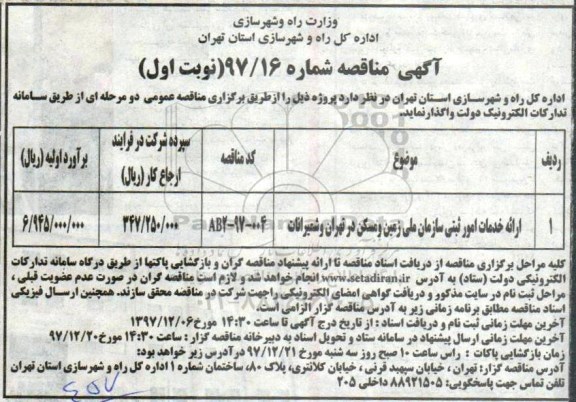 وزارت راه وشهرسازی
اداره کل راه و شهرسازی استان تهران
آگهی مناقصه شماره ۹۷/۱۶(نوبت اول)
اداره کل راه و شهرسازی استان تهران در نظر دارد پروژه ذیل را ازطریق برگزاری مناقصه عمومی دو مرحله ای از طریق سامانه
تدارکات الکترونیک دولت واگذارنماید.
ردیف موضوع کد مناقصه سپرده شرکت در فرایند ارجاع کار (ریال) برآورد اولیه (ریال)
۱ ارائه خدمات امور ثبتی سازمان ملی زمین ومسکن در تهران وشمیرانات AB۲-۹۷-۰۰۴ ۳۴۷/۲۵۰/۰۰۰ ۶/۹۴۵/۰۰۰/۰۰۰
کلیه مراحل برگزاری مناقصه از دریافت اسناد مناقصه تا ارائه پیشنهاد مناقصه گران و بازگشایی پاکتها از طریق درگاه سامانه تدارکات
الکترونیکی دولت (ستاد) به آدرس www.setadiran.ir انجام خواهد شد و لازم است مناقصه گران در صورت عدم عضویت قبلی ،
مراحل ثبت نام در سایت مذکور و دریافت گواهی امضای الکترونیکی را جهت شرکت در مناقصه محقق سازند. همچنین ارسال فیزیکی
اسناد مناقصه مطابق برنامه زمانی زیر به آدرس مناقصه گزار الزامی است.
آخرین مهلت زمانی ثبت نام و دریافت اسناد : از تاریخ درج آگهی تا ساعت ۱۴:۳۰ مورخ ۱۳۹۷/۱۲/۰۶
آخرین مهلت زمانی ارسال پیشنهاد در سامانه ستاد و تحویل اسناد به دبیرخانه مناقصه گزار : ساعت ۱۴:۳۰ مورخ ۹۷/۱۲/۲۰
زمان بازگشایی پاکات : راس ساعت ۱۰ صبح روز سه شنبه مورخ ۹۷/۱۲/۲۱ درآدرس زیر خواهد بود:
آدرس مناقصه گزار: تهران ، خیابان سپهبد قرنی ، خیابان کلانتری، پلاک ۸۰، ساختمان شماره ۱ اداره کل راه و شهرسازی استان تهران
تلفن تماس جهت پاسخگویی: ۸۸۹۲۱۵۰۵ داخلی ۲۰۵